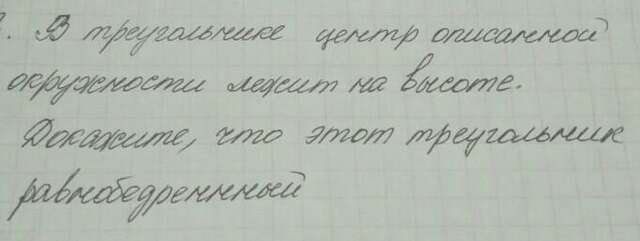 . В треугольнике центр описанной
окружности лежит на высоте.
Докажите, что этот треугольник
равнобедреннный